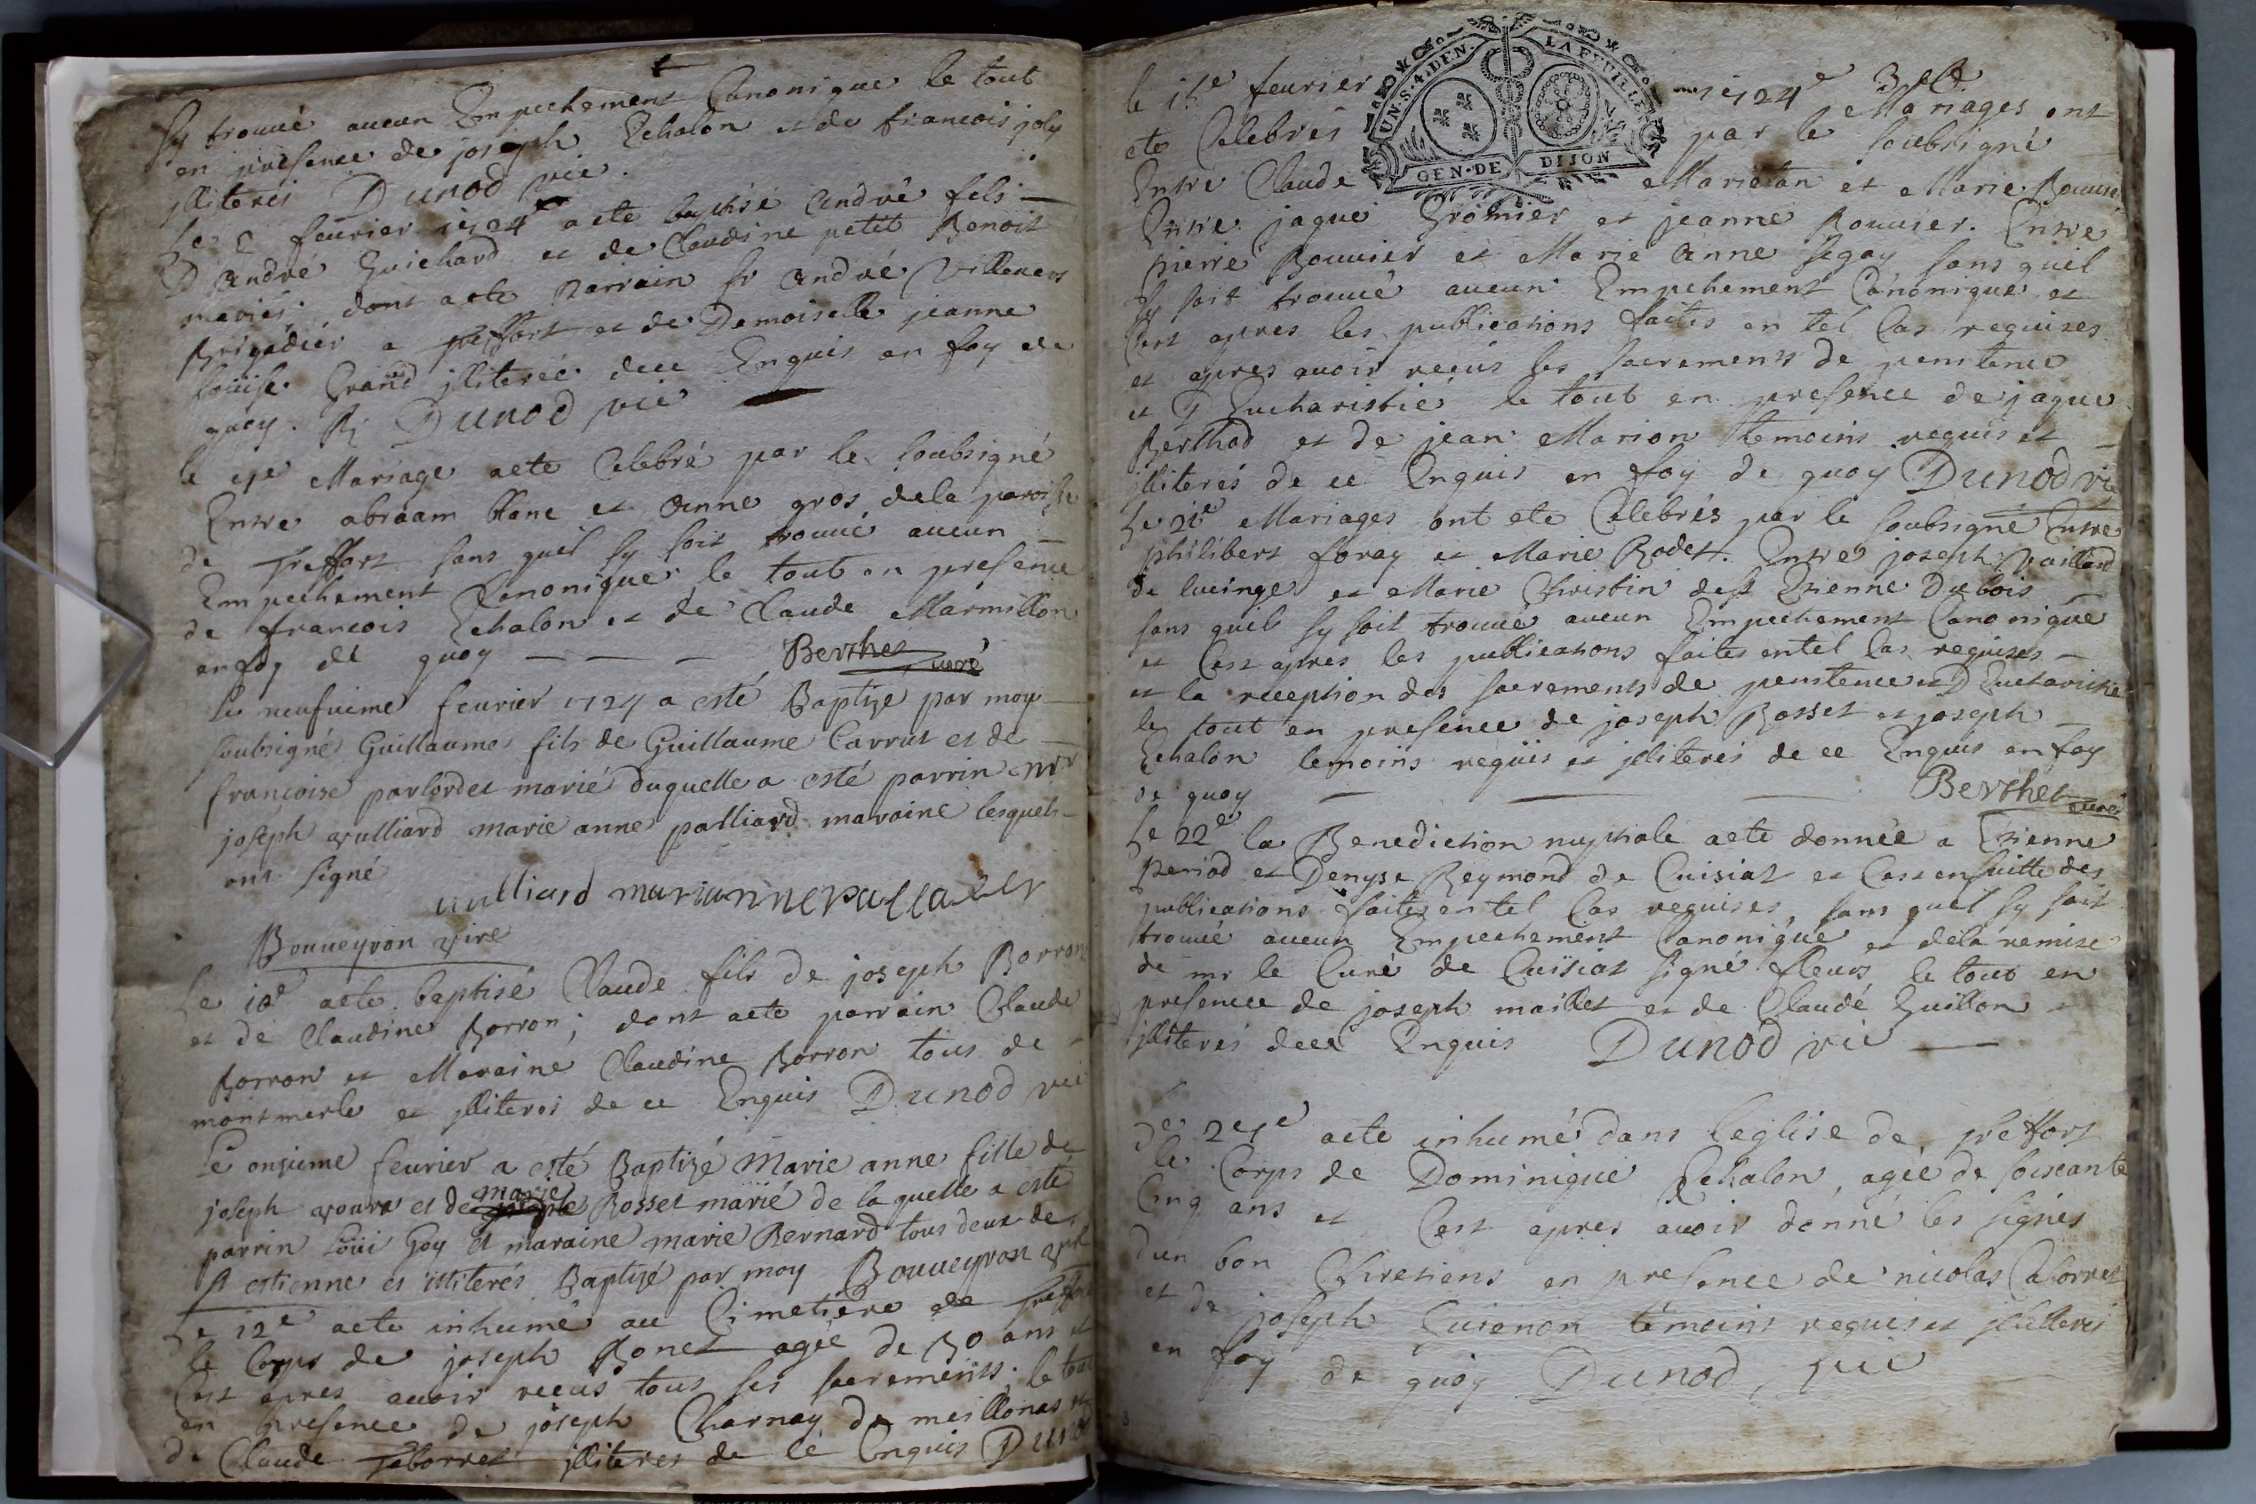 sy trouvé aucun Empechement Canonique le tout
en presence de joseph Echalon et de francois joly
jlliterés Dunod vic
Le fevrier 1724 aeté baptisé André fils
D André Guichard et de Claudine petit Benoit
mariés, dont aeté parrain sr André Villeneu
Brigadier a preffort et de Demoiselle jeanne
Louise Grand jlliterée dece Enquis en foy de
quoy. Dunod vic
le Mariage aeté Celebré par le soubsigné
Entre abraam blanc et Anne gros dela paroisse
de preffort sans quil sy soit trouvé aucun
Empechement Canonique le tout en presence
de francois Echalon et de Claude Marmillon
en foy de quoy Berthet curé
Le neufvieme fevrier 1724 a esté Baptizé par moy
soubsigné Guillaume fils de Guillaume Carrut et de
francoise parlordet marié duquelle a esté parrin mr
joseph vulliard marie anne palliard maraine lesquels
ont signé
vulliard marianne
Bouveyron vire
Le 10e aeté baptisé Claude fils de joseph Borron
et de Claudine Borron; dont aeté parrain Claude
Borron et Maraine Claudine Borron tous de
montmerle et jlliterés de ce Enquis Dunod vic
Le onsieme fevrier a esté Baptizé Marie anne fille de
joseph et de marie Rosset marié de laquelle a esté
parrin Loüi Goy et maraine marie Bernard tous deux de
st estienne et illiterés Baptizé par moy Bouveyron
Le 12e aeté inhumé au Cimetiere de preffort
le Corps de joseph Bonet agée de 50 ans et
Cest apres avoir recus tous ses sacrements; le tout
en presence de joseph Charnay de meillonas et
de Claude jlliteres de ce Enquis Dunod
UN.S.4.DEN. LA FEUILLE
GEN.DE DIJON
le 15e fevrier 1724e Mariages ont
eté Celebrés par le soubsigné
Entre Claude Marietan et Marie Bouvier
Entre jaque Gromier et jeanne Bouvier. Entre
pierre Bouvier et Marie Anne segay sans quil
sy soit trouvé aucun Empechement Canonique et
Cest apres les publications faites en tel Cas requises
et apres avoir recus les sacrements de penitence
et D Eucharistie le tout en presence de jaque
Berthod et de jean Marion temoins requis et
jlliterés de ce Enquis en foy de quoy Dunod vic
Le 21e Mariages ont eté Celebrés par le soubsigné Entre
philibert foray et Marie Rodet. Entre joseph paillard
de lucinge et Marie Christin de st Etienne Dubois
sans quil sy soit trouvé aucun Empechement Canonique
et Cest apres les publications faites entel Cas requises
et la reception des sacrements de penitence et D Eucharistie
le tout en presence de joseph Rosset et joseph
Echalon temoins requis et jlliterés de ce Enquis en foy
de quoy Berthet curé
Le 22e la Benediction nuptiale aeté donnée a Etienne
Period et Denyse Reymond de Cuisiat et Cest ensuitte des
publications faites en tel Cas requises, sans quil sy soit
trouvé aucun Empechement Canonique et dela remise
de mr le Curé de Cuisiat signé fleury le tout en
presence de joseph maillet et de Claude Guillon
jlliterés dece Enquis Dunod vic
aeté inhumé dans leglise de preffort
le Corps de Dominique Echalon, agée de soixante
Cinq ans et Cest apres avoir donné les signes
dun bon Chretiens en presence de nicolas
et de joseph Cuienon témoins requis et jlliterés
en foy de quoy Dunod, vic